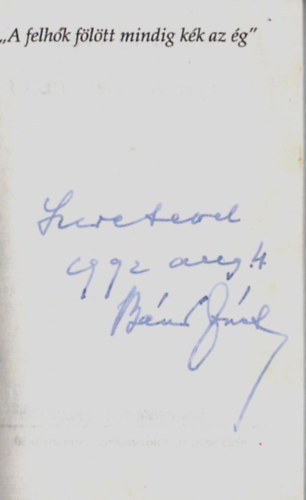 „A felhők fölött mindig kék az ég”
Szeretettel
1992 aug. 4
Bánó